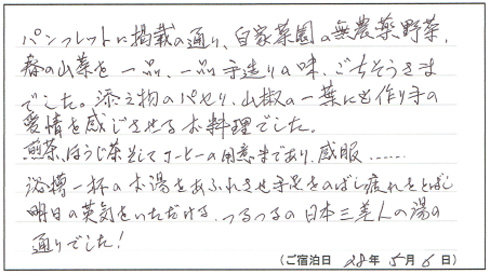 パンフレットに掲載の通り、自家菜園の無農薬野菜、
春の山菜を一品、一品手造りの味、ごちそうさま
でした。添え物のパセリ、山椒の一葉にも作り手の
愛情を感じさせるお料理でした。
煎茶、ほうじ茶そしてコーヒーの用意まであり、感服……
浴槽一杯のお湯をあふれさせ手足をのばし疲れをとばし
明日の英気をいただける、つるつるの日本三美人の湯の
通りでした!
(ご宿泊日 28年 5月 6日)